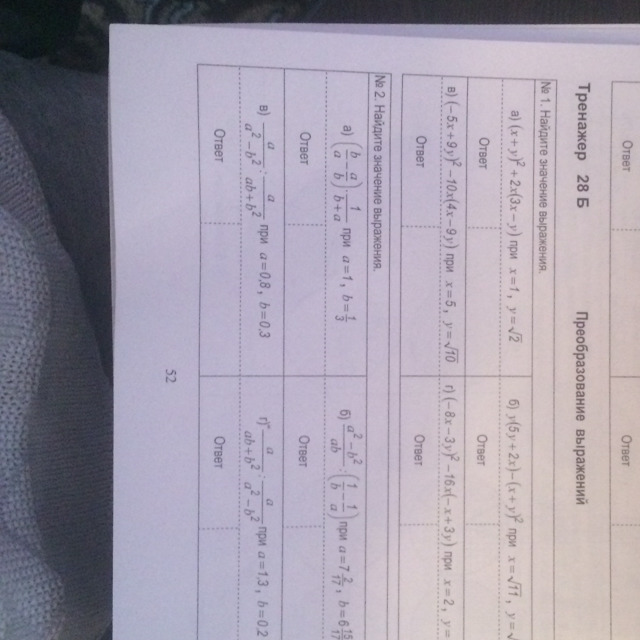 Ответ
Ответ
Тренажер 28 Б Преобразование выражений
№ 1. Найдите значение выражения.
а) (x+y)²+2x(3x−y) при x=1, y=√2
б) y(5y+2x)−(x+y)² при x=√11, y=
Ответ
Ответ
в) (−5x+9y)²−10x(4x−9y) при x=5, y=√10
г) (−8x−3y)²−16x(−x+3y) при x=2, y=
Ответ
Ответ
№ 2. Найдите значение выражения.
а) (b/a − a/b)·1/(b+a) при a=1, b=1/3
б) (a²−b²)/(ab) : (1/b − 1/a) при a=7 2/17, b=6 15/17
Ответ
Ответ
в) a/(a²−b²) : a/(ab+b²) при a=0,8, b=0,3
г) a/(ab+b²) : a/(a²−b²) при a=1,3, b=0,2
Ответ
Ответ
52